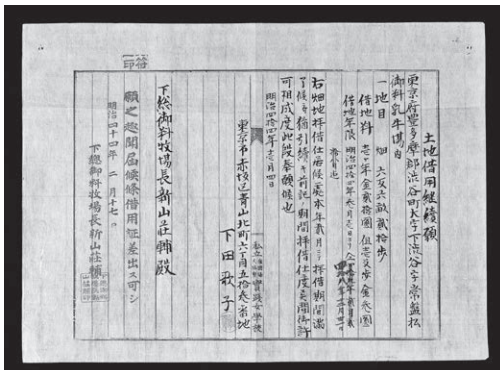 土地借用継續願
東京府豊多摩郡渋谷町大字下渋谷字常盤松
御料乳牛場内
一地目 畑 六反六畝弐拾歩
借地料 壱ヶ年金弐拾圓 但壱反歩金参圓
借地年限 明治四拾四年
右畑地拝借仕居候處本年 拝借期間満
了候ニ付引續キ前記ノ期間拝借仕度候間御許
可相成度此段奉願候也
明治四拾四年壱月四日
東京市赤坂区青山北町六丁目五拾参番地
私立 實践女学校
下田歌子
下総御料牧場長新山荘輔殿
願之趣聞届候條借用証差出スヘシ
明治四十四年二月十七日
下総御料牧場長新山荘輔